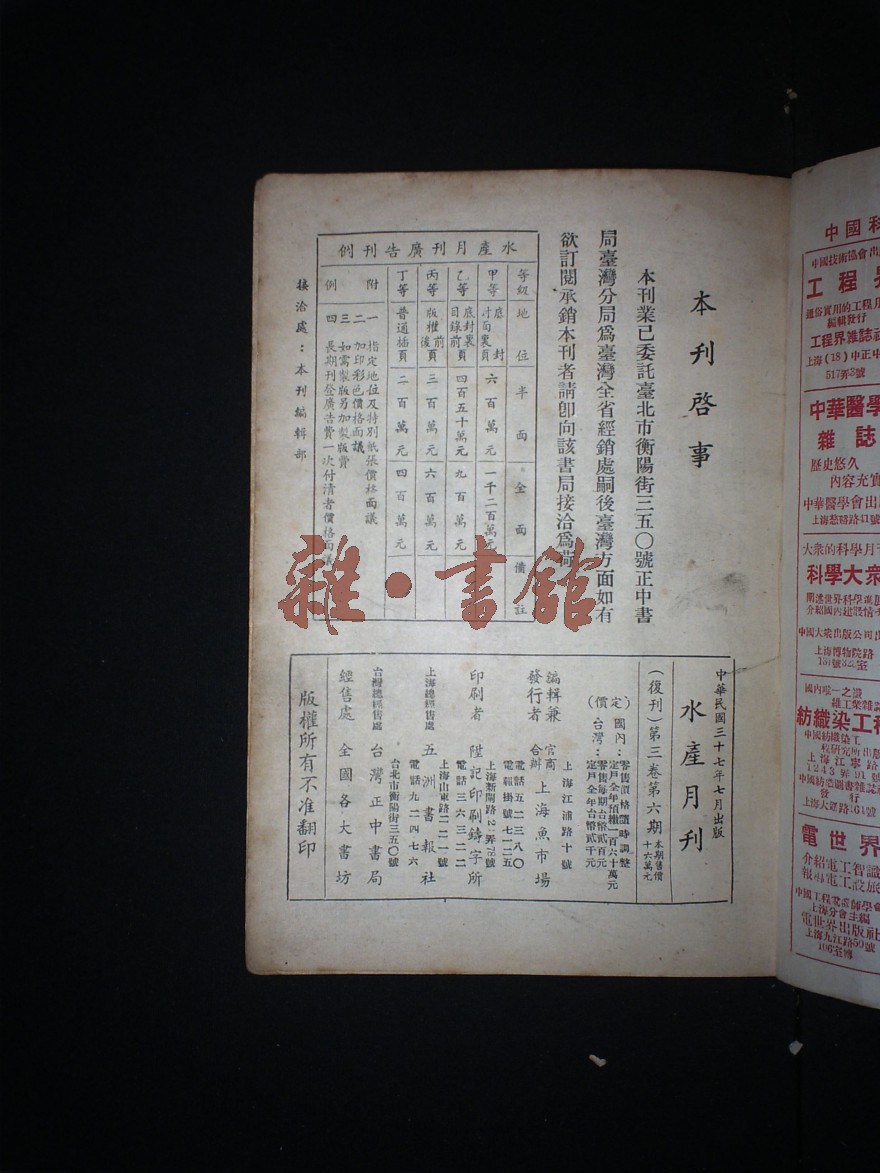 本刊啓事
本刊業已委託臺北市衡陽街三五〇號正中書
局臺灣分局爲臺灣全省經銷處嗣後臺灣方面如有
欲訂閱承銷本刊者請卽向該書局接洽爲荷
水產月刊廣告刊例
等級 地位 半面 全面 備註
甲等 底封 封面裏頁 六百萬元 一千二百萬元
乙等 底封裏頁 目錄前 四百五十萬元 九百萬元
丙等 版權前後頁 三百萬元 六百萬元
丁等 普通插頁 二百萬元 四百萬元
附例
一 指定地位及特別紙張價格面議
二 加印彩色價格面議
三 如需製版另加製版費
四 長期刊登廣告費一次付清者價格面議
接洽處：本刊編輯部
中華民國三十七年七月出版
水產月刊
(復刊)第三卷第六期 本期售價十六萬元
(定價)
國內：零售價格隨時調整
定戶全年預繳一百六十萬元
台灣：零售每期台幣貳百元
定戶全年台幣貳千元
編輯兼發行者 官商合辦 上海魚市場
上海江浦路十號
電話五二三八〇
電報掛號七一二五
印刷者 陞記印刷鑄字所
電話三六三二二
上海總經售處 五洲書報社
上海山東路二二一號
電話九二四七六
台灣總經售處 台灣正中書局
台北市衡陽街三五〇號
經售處 全國各大書坊
版權所有不准翻印
雜·書館
中國科
中國技術協會出
工程界
通俗實用的工程月
編輯發行
工程界雜誌社
上海(18)中正中
517弄3號
中華醫學
雜誌
歷史悠久
內容充實
中華醫學會出
上海慈谿路41號
大衆的科學月刊
科學大衆
闡述世界科學進展
介紹國內建設情
中國大衆出版公司出
上海博物院路
131號323室
國內唯一之
紡織染工程
中國紡織染工
程研究所出版
上海江寧路
1243弄91號
電世界
介紹電工智識
報導電工設施
上海分會主編
電世界出版社
上海九江路50號
106室